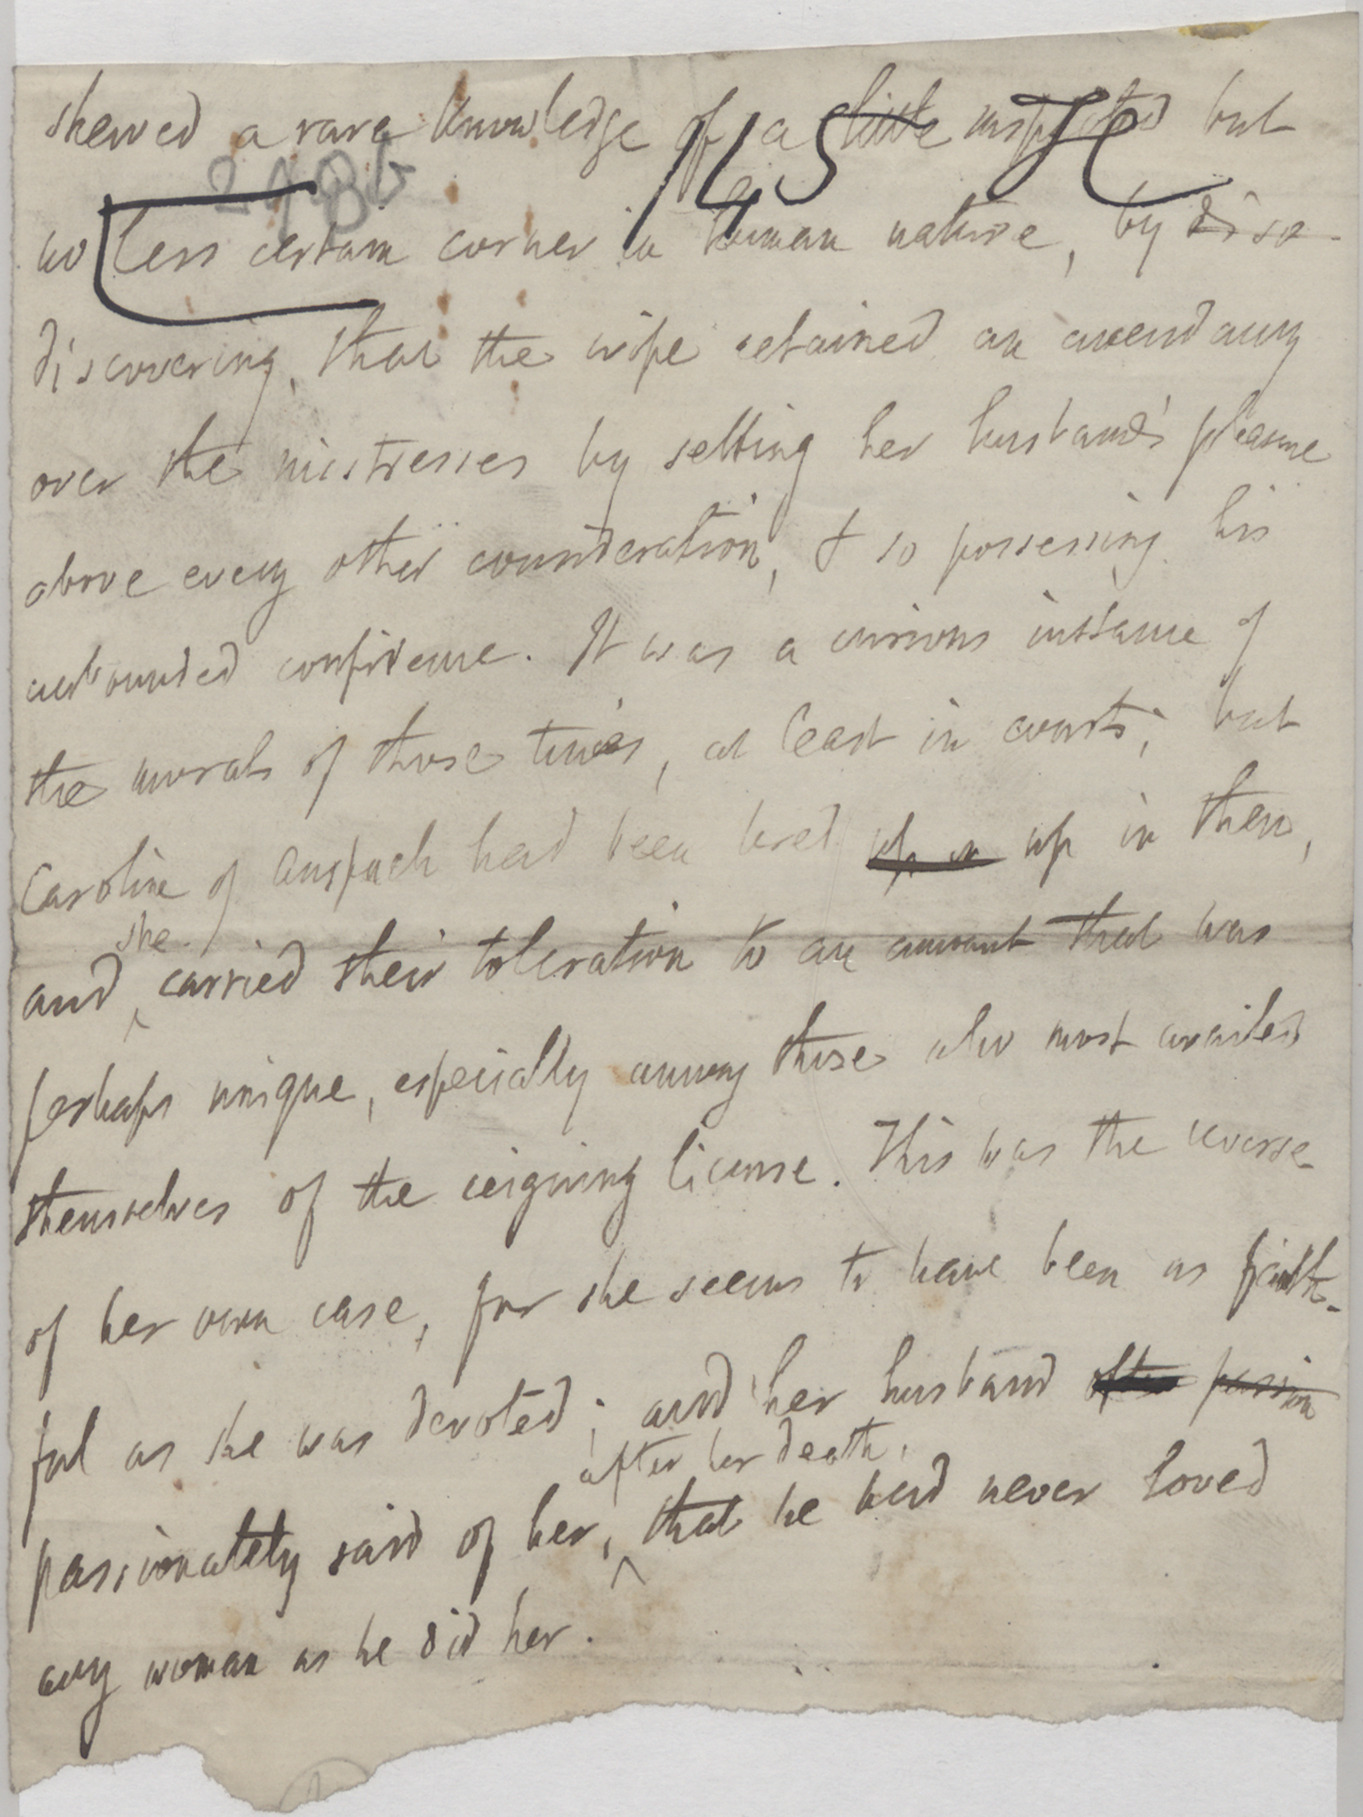 shewed a rara knowledge of a little suspected but
2486
145 H
no less certain corner in human nature, by disa-
discovering, that the wife retained an ascendancy
over the mistresses by setting her husband's pleasure
above every other consideration, & so possessing his
unbounded confidence. It was a curious instance of
the morals of those times, at least in courts; but
Caroline of Anspach had been bred up in up in them,
she
and carried their toleration to an amount that was
perhaps unique, especially among those who most availed
themselves of the reigning license. This was the reverse
of her own case, for she seems to have been as faith-
ful as she was devoted; and her husband often passion
after her death,
passionately said of her, that he had never loved
any woman as he did her.